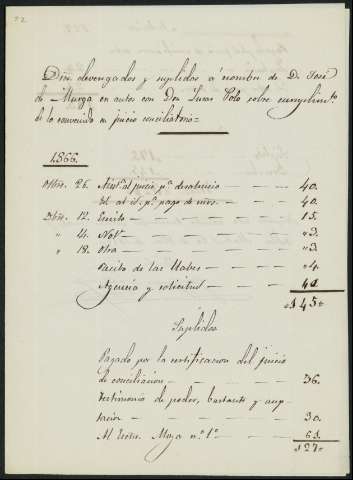 Dros. devengados y suplidos a nombre de D. José
de Murga en autos con Don Lucas Polo sobre cumplimto.
de lo convenido en juicio conciliatorio =
1866.
Octbre. 26. Asista. al juicio pa. desahucio — 40.
Id. al id. pa. pago de mrs. — 40.
Dbre. 12. Escrito — 15.
" 14. Nota — "3.
" 18. Otra — "3.
Recibo de las llabes — "4.
Agencia y solicitud — 40
145=
Suplidos
Pagado por la certificacion del juicio
de conciliacion — 36.
Testimonio de poder, bastanteo y acep
tacion — 30.
Al Escno. Moya n.o 1o — 61.
127=